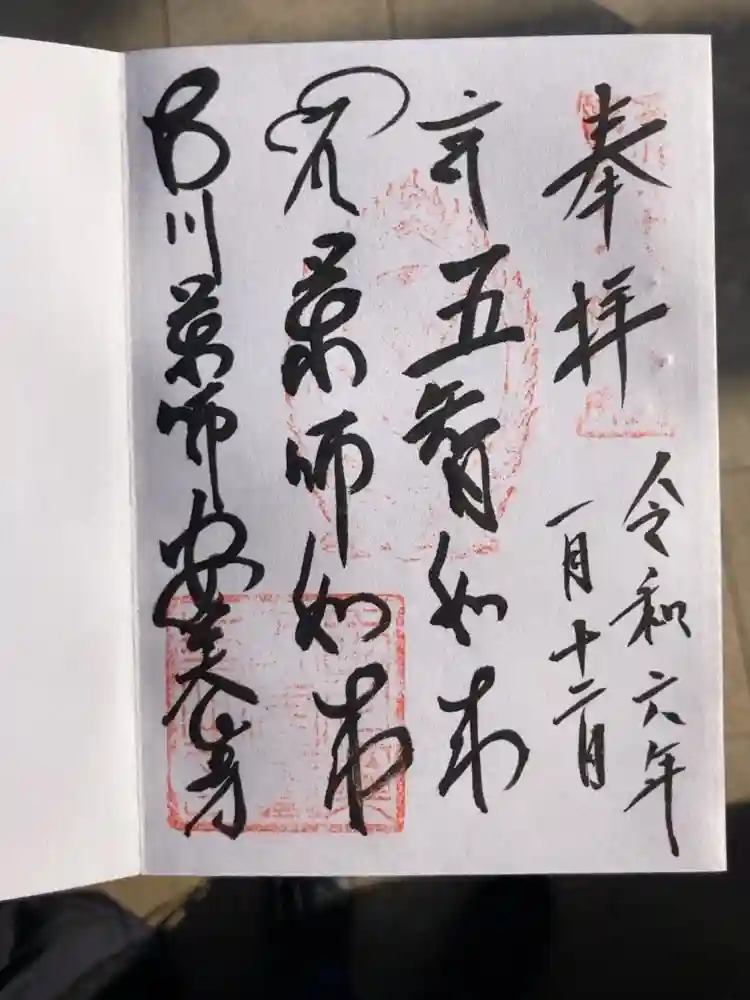 奉拝
令和六年
一月十二日
五智如来
薬師如来
川薬師安養寺